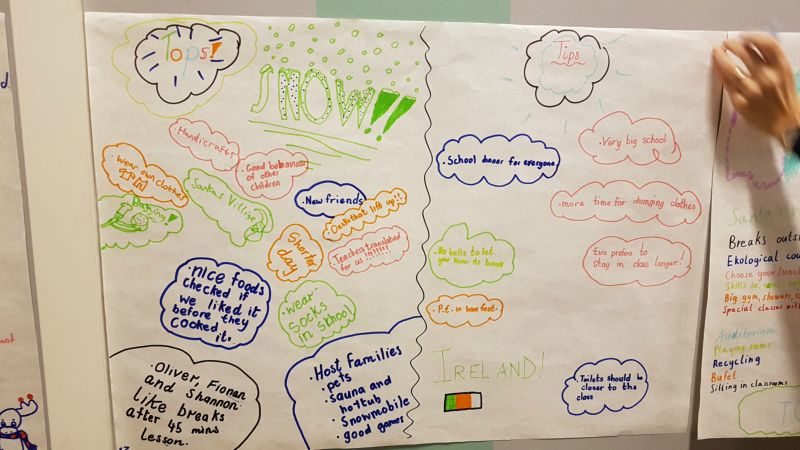 Tops!
SNOW!!
· Handicrafts
· Good behaviour
of other
children
· Wear own clothes
Santa's Village
baking!
· New friends
· Desks that lift up!!
Shorter
day
Teachers translated
for us !!!!!!!
· nice foods
checked if
we liked it
before they
cooked it.
· wear
socks
in school
· Oliver, Fionan
and Shannon
like breaks
after 45 mins
lesson.
· Host Families
· pets
· sauna and
hottub
· Snowmobile
· good games
Tips
· School dinner for everyone
· Very big school
· more time for changing clothes
· No bells to let
you know its break
Eva prefers to
stay in class longer!
· P.E. in bare feet.
IRELAND!
· Toilets should be
closer to the
class
Santa's
Breaks outs
Ekological
Choose your lunch
Big gym, showers,
Special classes with
Auditorium
Playing
Recycling
Bufet
Sitting in classrooms